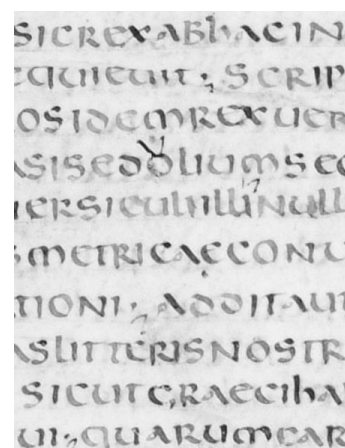 SIC REX AB hAC IN
EQUIEUIT; SCRIP
OS IDEM REX UER
ASI SEDOLIUM SEC
ERSICULI ILLI NULL
S METRICAE CONU
TIONI· ADDIT AUT
AS LITTERIS NOSTR
SICUT GRAECI hA
UI; QUARUM CAR